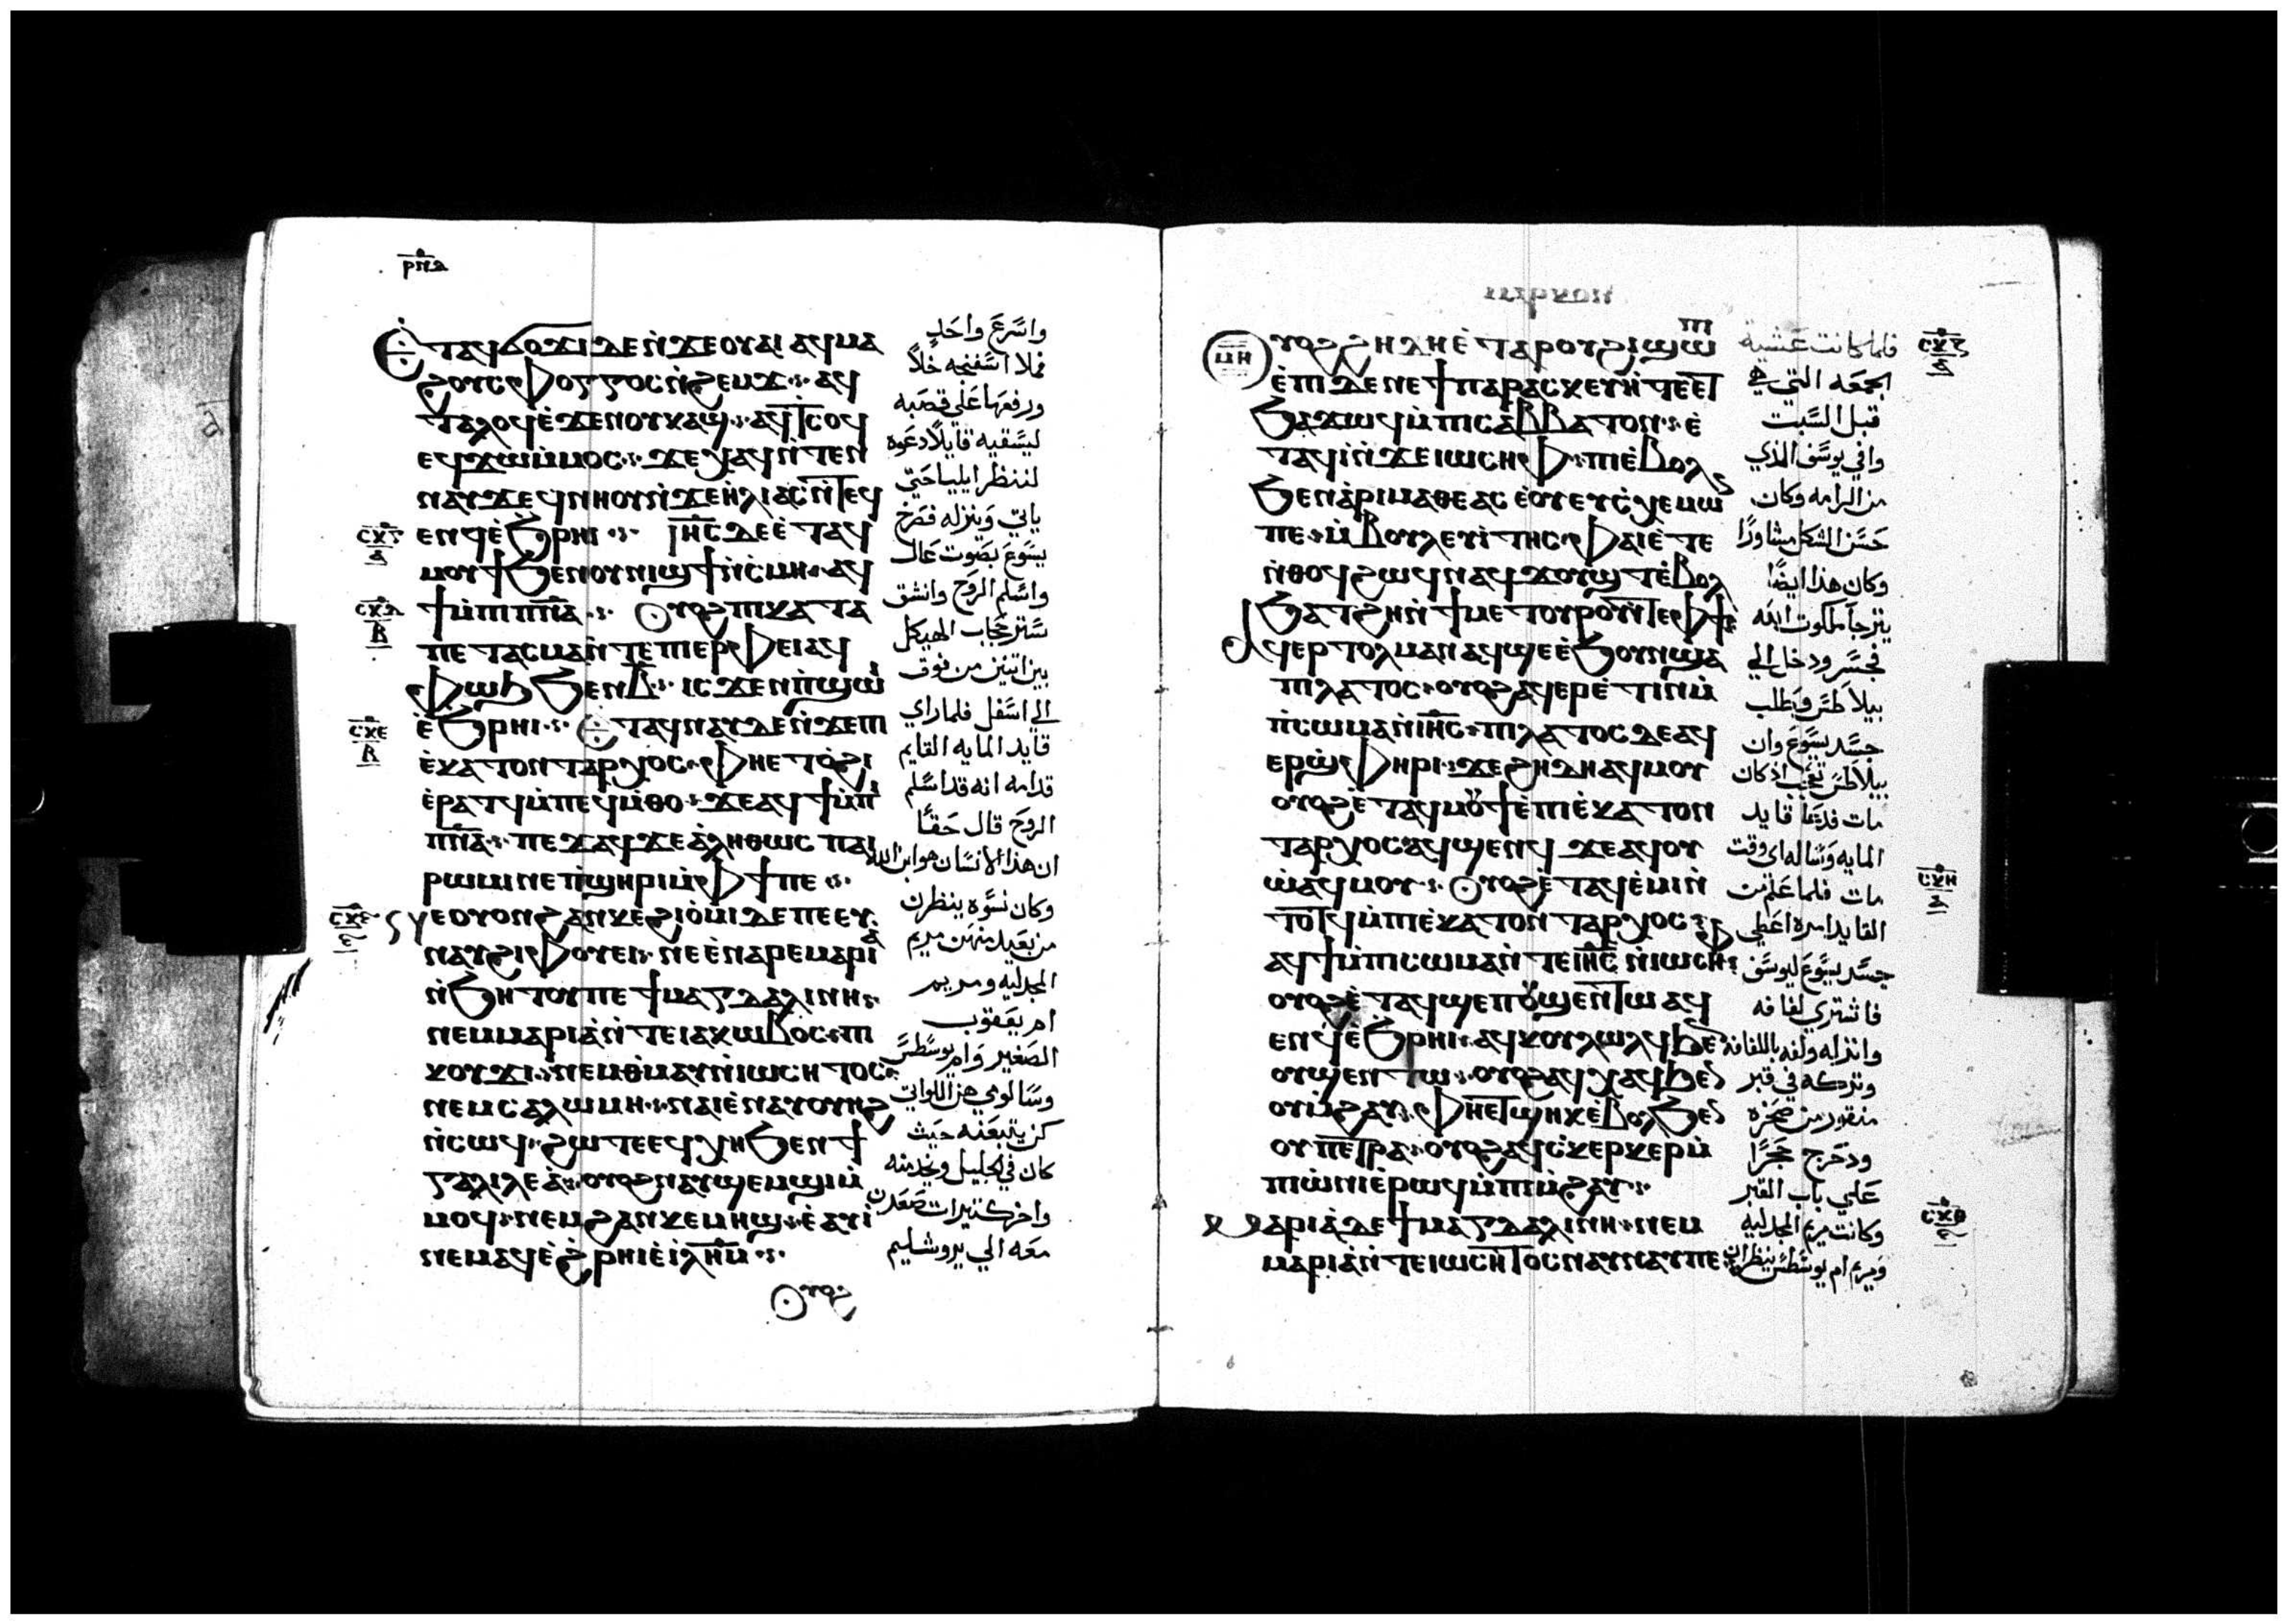 ⲣⲡⲇ
Ⲉⲧⲁϥϭⲟϫⲓ ⲇⲉ ⲛ̀ϫⲉ ⲟⲩⲁⲓ ⲁϥⲙⲁ
ϩ ⲟⲩⲥⲫⲟⲅⲅⲟⲥ ⲛ̀ϩⲉⲙϫ ⁘ ⲁϥ
ⲧⲁⲗⲟϥ ⲉ̀ϫⲉⲛ ⲟⲩⲕⲁϣ ⁘ ⲁϥⲧⲥⲟϥ
ⲉϥϫⲱ ⲙ̀ⲙⲟⲥ ⁘ ϫⲉ ⲭⲁϥ ⲛ̀ⲧⲉⲛ
ⲛⲁⲩ ϫⲉ ϥⲛⲏⲟⲩ ⲛ̀ϫⲉ ⲏ̀ⲗⲓⲁⲥ ⲛ̀ⲧⲉϥ
ⲉⲛϥ ⲉ̀ϧⲣⲏⲓ ⁘ ⲓⲏ̅ⲥ ⲇⲉ ⲉ̀ⲧⲁϥ
ⲙⲟⲩϯ ϧⲉⲛ ⲟⲩⲛⲓϣϯ ⲛ̀ⲥⲙⲏ ⁘ ⲁϥ
ϯ ⲙ̀ⲡⲓⲡ̅ⲛ̅ⲁ ⁘ Ⲟⲩⲟϩ ⲡⲓⲕⲁⲧⲁ
ⲡⲉⲧⲁⲥⲙⲁ ⲛ̀ⲧⲉ ⲡⲓⲉⲣⲫⲉⲓ ⲁϥ
ⲫⲱϧ ϧⲉⲛ ⲃ̅ ⁘ ⲓⲥϫⲉⲛ ⲡ̀ϣⲱⲓ
ⲉ̀ϧⲣⲏⲓ ⁘ Ⲉⲧⲁϥⲛⲁⲩ ⲇⲉ ⲛ̀ϫⲉ ⲡⲓ
ⲉ̀ⲕⲁⲧⲟⲛⲧⲁⲣⲭⲟⲥ ⁘ ⲫⲏ ⲉⲧⲟ̀ϩⲓ
ⲉ̀ⲣⲁⲧϥ ⲙ̀ⲡⲉϥⲙ̀ⲑⲟ ⁘ ϫⲉ ⲁϥϯ ⲙ̀ⲡⲓ
ⲡ̅ⲛ̅ⲁ ⁘ ⲡⲉϫⲁϥ ϫⲉ ⲁ̀ⲗⲏⲑⲱⲥ ⲡⲁⲓ
ⲣⲱⲙⲓ ⲛⲉ ⲡ̀ϣⲏⲣⲓ ⲙ̀ⲫϯ ⲡⲉ ⁘
ⲛⲉ ⲟⲩⲟⲛ ϩⲁⲛⲕⲉϩⲓⲟ̀ⲙⲓ ⲇⲉ ⲡⲉ ⲉⲩ
ⲛⲁⲩ ϩⲓ ⲫⲟⲩⲉⲓ ⁘ ⲛⲉ ⲉ̀ⲛⲁⲣⲉ ⲙⲁⲣⲓⲁ
ⲛ̀ϧⲏⲧⲟⲩ ⲡⲉ ϯⲙⲁⲅⲇⲁⲗⲓⲛⲏ ⁘
ⲛⲉⲙ ⲙⲁⲣⲓⲁ̀ ⲛ̀ⲧⲉ ⲓⲁⲕⲱⲃⲟⲥ ⁘ ⲡⲓ
ⲕⲟⲩϫⲓ ⁘ ⲛⲉⲙ ⲑ̀ⲙⲁⲩ ⲛ̀ⲓⲱⲥⲏⲧⲟⲥ ⁘
ⲛⲉⲙ ⲥⲁⲗⲱⲙⲏ ⁘ ⲛⲁⲓ ⲉ̀ⲛⲁⲩⲟⲩⲏϩ
ⲛ̀ⲥⲱϥ ⁘ ϩⲱⲧⲉ ⲉϥⲭⲏ ϧⲉⲛ ϯ
ⲅⲁⲗⲓⲗⲉⲁ̀ ⁘ ⲟⲩⲟϩ ⲛⲁⲩϣⲉⲙϣⲓ ⲙ̀
ⲙⲟϥ ⁘ ⲛⲉⲙ ϩⲁⲛⲕⲉⲙⲏϣ ⁘ ⲉ̀ⲁⲩⲓ̀
ⲛⲉⲙⲁϥ ⲉ̀ϩⲣⲏⲓ ⲉ̀ⲓ̀ⲗ̅ⲏ̅ⲙ̅ ⁘
Ⲟⲩⲟϩ
واسرع واحد
فملا اسفنجه خلاً
ورفعها على قصبه
ليسقيه قايلاً دعوه
لننظر ايليا حتي
ياتي وينزله فصرخ
يسوع بصوت عال
واسلم الروح وانشق
ستر حجاب الهيكل
بين اتنين من فوق
الي اسفل فلما راي
قايد المايه القايم
قدامه انه قد اسلم
الروح قال حقًا
ان هذا الانسان هو ابن الله
وكان نسوه ينظرن
من بعيد منهن مريم
المجدليه ومريم
ام يعقوب
الصغير وام يوسطس
وسالومي هن اللواتي
كن يتبعنه حيث
كان في الجليل ويخدمنه
واخر كتيرات صعدن
معه الي يروشليم
ⲥⲕⲅ
ⲥⲕⲇ
ⲃ
ⲥⲕⲉ
ⲃ
ⲥⲕⲋ
ⲙⲏ
Ⲟⲩⲟϩ ϩⲏⲇⲏ ⲉ̀ⲧⲁ ⲣⲟⲩϩⲓ ϣⲱⲡⲓ
ⲉ̀ⲡⲓⲇⲉ ⲛⲉ ϯⲡⲁⲣⲁⲥⲕⲉⲩⲏ̀ ⲧⲉ ⲉⲧ
ϧⲁϫⲱϥ ⲙ̀ⲡⲓⲥⲁⲃⲃⲁⲧⲟⲛ ⁘ ⲉ̀
ⲧⲁϥⲓ̀ ⲛ̀ϫⲉ ⲓⲱⲥⲏⲫ ⁘ ⲡⲓⲉ̀ⲃⲟⲗ
ϧⲉⲛ ⲁ̀ⲣⲓⲙⲁⲑⲉⲁⲥ ⲉ̀ⲟⲩⲉⲩⲥⲭⲉⲙⲱⲛ
ⲡⲉ ⁘ ⲙ̀ⲃⲟⲩⲗⲉⲩⲧⲏⲥ ⲫⲁⲓ ⲉ̀ⲧⲉ
ⲛ̀ⲑⲟϥ ϩⲱϥ ⲛⲁϥϫⲟⲩϣⲧ ⲉ̀ⲃⲟⲗ
ϧⲁⲧϩⲏ ⲛ̀ϯⲙⲉⲧⲟⲩⲣⲟ ⲛ̀ⲧⲉ ⲫϯ
ⲁϥⲉⲣⲧⲟⲗⲙⲁⲛ ⲁϥϣⲉ ⲉ̀ϧⲟⲩⲛ ϣⲁ
ⲡⲓⲗⲁⲧⲟⲥ ⁘ ⲟⲩⲟϩ ⲁϥⲉⲣⲉ̀ⲧⲓⲛ ⲙ̀
ⲡ̀ⲥⲱⲙⲁ ⲛ̀ⲓⲏ̅ⲥ ⁘ ⲡⲓⲗⲁⲧⲟⲥ ⲇⲉ ⲁϥ
ⲉⲣϣ̀ⲫⲏⲣⲓ ⁘ ϫⲉ ϩⲏⲇⲏ ⲁϥⲙⲟⲩ
ⲟⲩⲟϩ ⲉ̀ⲧⲁϥⲙⲟⲩϯ ⲉ̀ⲡⲓⲉ̀ⲕⲁⲧⲟⲛ
ⲧⲁⲣⲭⲟⲥ ⲁϥϣⲉⲛϥ ϫⲉ ⲁϥⲟⲩ
ⲱ̀ ⲁϥⲙⲟⲩ ⁘ Ⲟⲩⲟϩ ⲉ̀ⲧⲁϥⲉ̀ⲙⲓ ⲛ̀
ⲧⲟⲧϥ ⲙ̀ⲡⲓⲉ̀ⲕⲁⲧⲟⲛⲧⲁⲣⲭⲟⲥ ⁘
ⲁϥϯ ⲙ̀ⲡⲓⲥⲱⲙⲁ ⲛ̀ⲧⲉ ⲓⲏ̅ⲥ ⲛ̀ⲓⲱⲥⲏⲫ
ⲟⲩⲟϩ ⲉ̀ⲧⲁϥϣⲉⲡ ⲟⲩϣⲉⲛⲧⲱ ⲁϥ
ⲉⲛϥ ⲉ̀ϧⲣⲏⲓ ⁘ ⲁϥⲕⲟⲩⲗⲱⲗϥ ϧⲉⲛ
ⲟⲩϣⲉⲛⲧⲱ ⁘ ⲟⲩⲟϩ ⲁϥⲭⲁϥ ϧⲉⲛ
ⲟⲩⲙ̀ϩⲁⲩ ⁘ ⲫⲏ ⲉⲧϣⲏⲕ ⲉ̀ⲃⲟⲗ ϧⲉⲛ
ⲟⲩⲡⲉⲧⲣⲁ ⁘ ⲟⲩⲟϩ ⲁϥⲥⲕⲉⲣⲕⲉⲣ ⲙ̀
ⲡⲓⲱ̀ⲛⲓ ⲉ̀ⲣⲱϥ ⲙ̀ⲡⲓⲙ̀ϩⲁⲩ ⁘
Ⲙⲁⲣⲓⲁ̀ ⲇⲉ ϯⲙⲁⲅⲇⲁⲗⲓⲛⲏ ⁘ ⲛⲉⲙ
ⲙⲁⲣⲓⲁ̀ ⲛ̀ⲧⲉ ⲓⲱⲥⲏⲧⲟⲥ ⲛⲁⲩⲛⲁⲩ ⲡⲉ
فلما كانت عشية
الجمعه التي هي
قبل السبت
وافي يوسف الذي
من الرامه وكان
حسن الشكل مشاورًا
وكان هذا ايضًا
يترجا ملكوت الله
فجسر ودخل الي
بيلاطس وطلب
جسد يسوع وان
بيلاطس تعجب اذ كان
مات فدعا قايد
المايه وساله اي وقت
مات فلما علم من
القايد امره اعطي
جسد يسوع ليوسف
فاشتري لفافه
وانزله ولفه باللفافه
وتركه في قبر
منقور من صخره
ودحرج حجرًا
علي باب القبر
وكانت مريم المجدليه
ومريم ام يوسطس ينظران
ⲥⲕⲍ
ⲥⲕⲏ
ⲥⲕⲑ